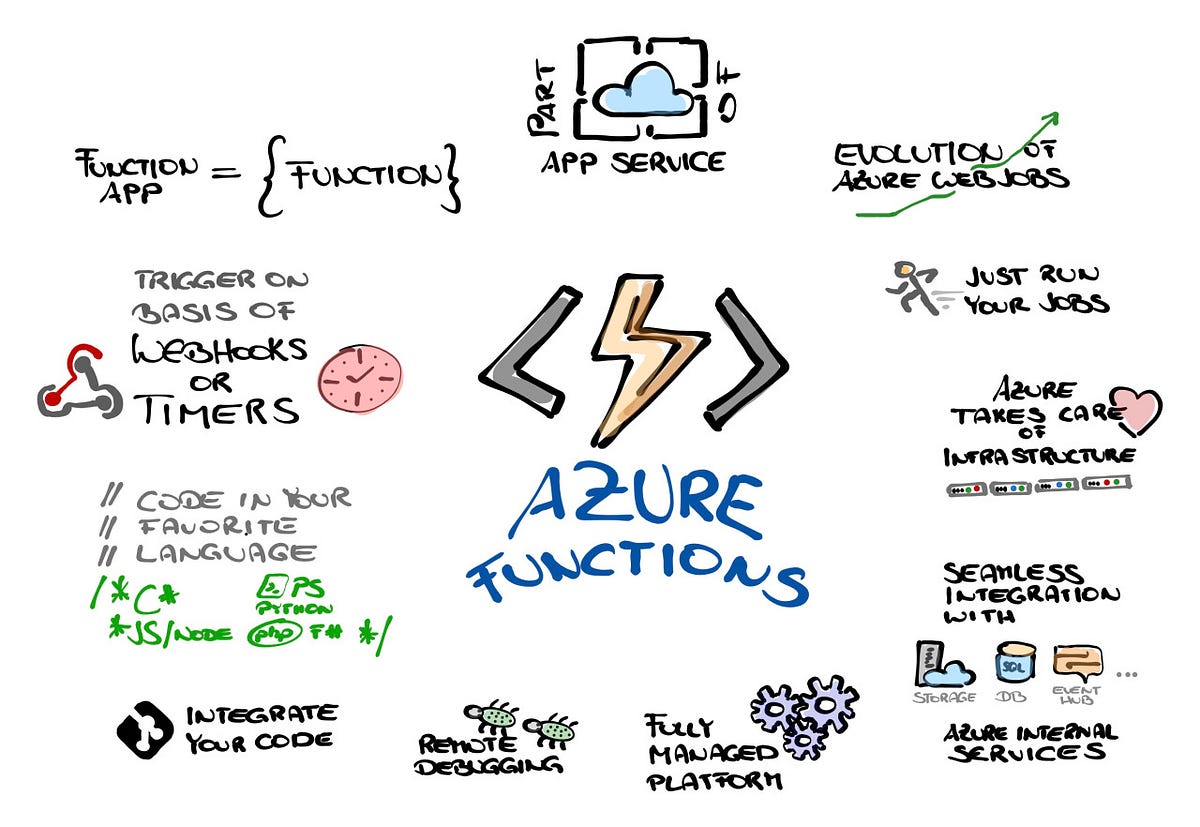 PART
OF
APP SERVICE
FUNCTION
APP
= {FUNCTION}
EVOLUTION OF
AZURE WEBJOBS
TRIGGER ON
BASIS OF
WEBHOOKS
OR
TIMERS
JUST RUN
YOUR JOBS
AZURE
TAKES CARE
OF
INFRASTRUCTURE
AZURE
FUNCTIONS
// CODE IN YOUR
// FAVORITE
// LANGUAGE
/* C# PS
PYTHON
*JS/NODE php F# */
SEAMLESS
INTEGRATION
WITH
SQL
STORAGE DB EVENT
HUB
...
AZURE INTERNAL
SERVICES
INTEGRATE
YOUR CODE
REMOTE
DEBUGGING
FULLY
MANAGED
PLATFORM